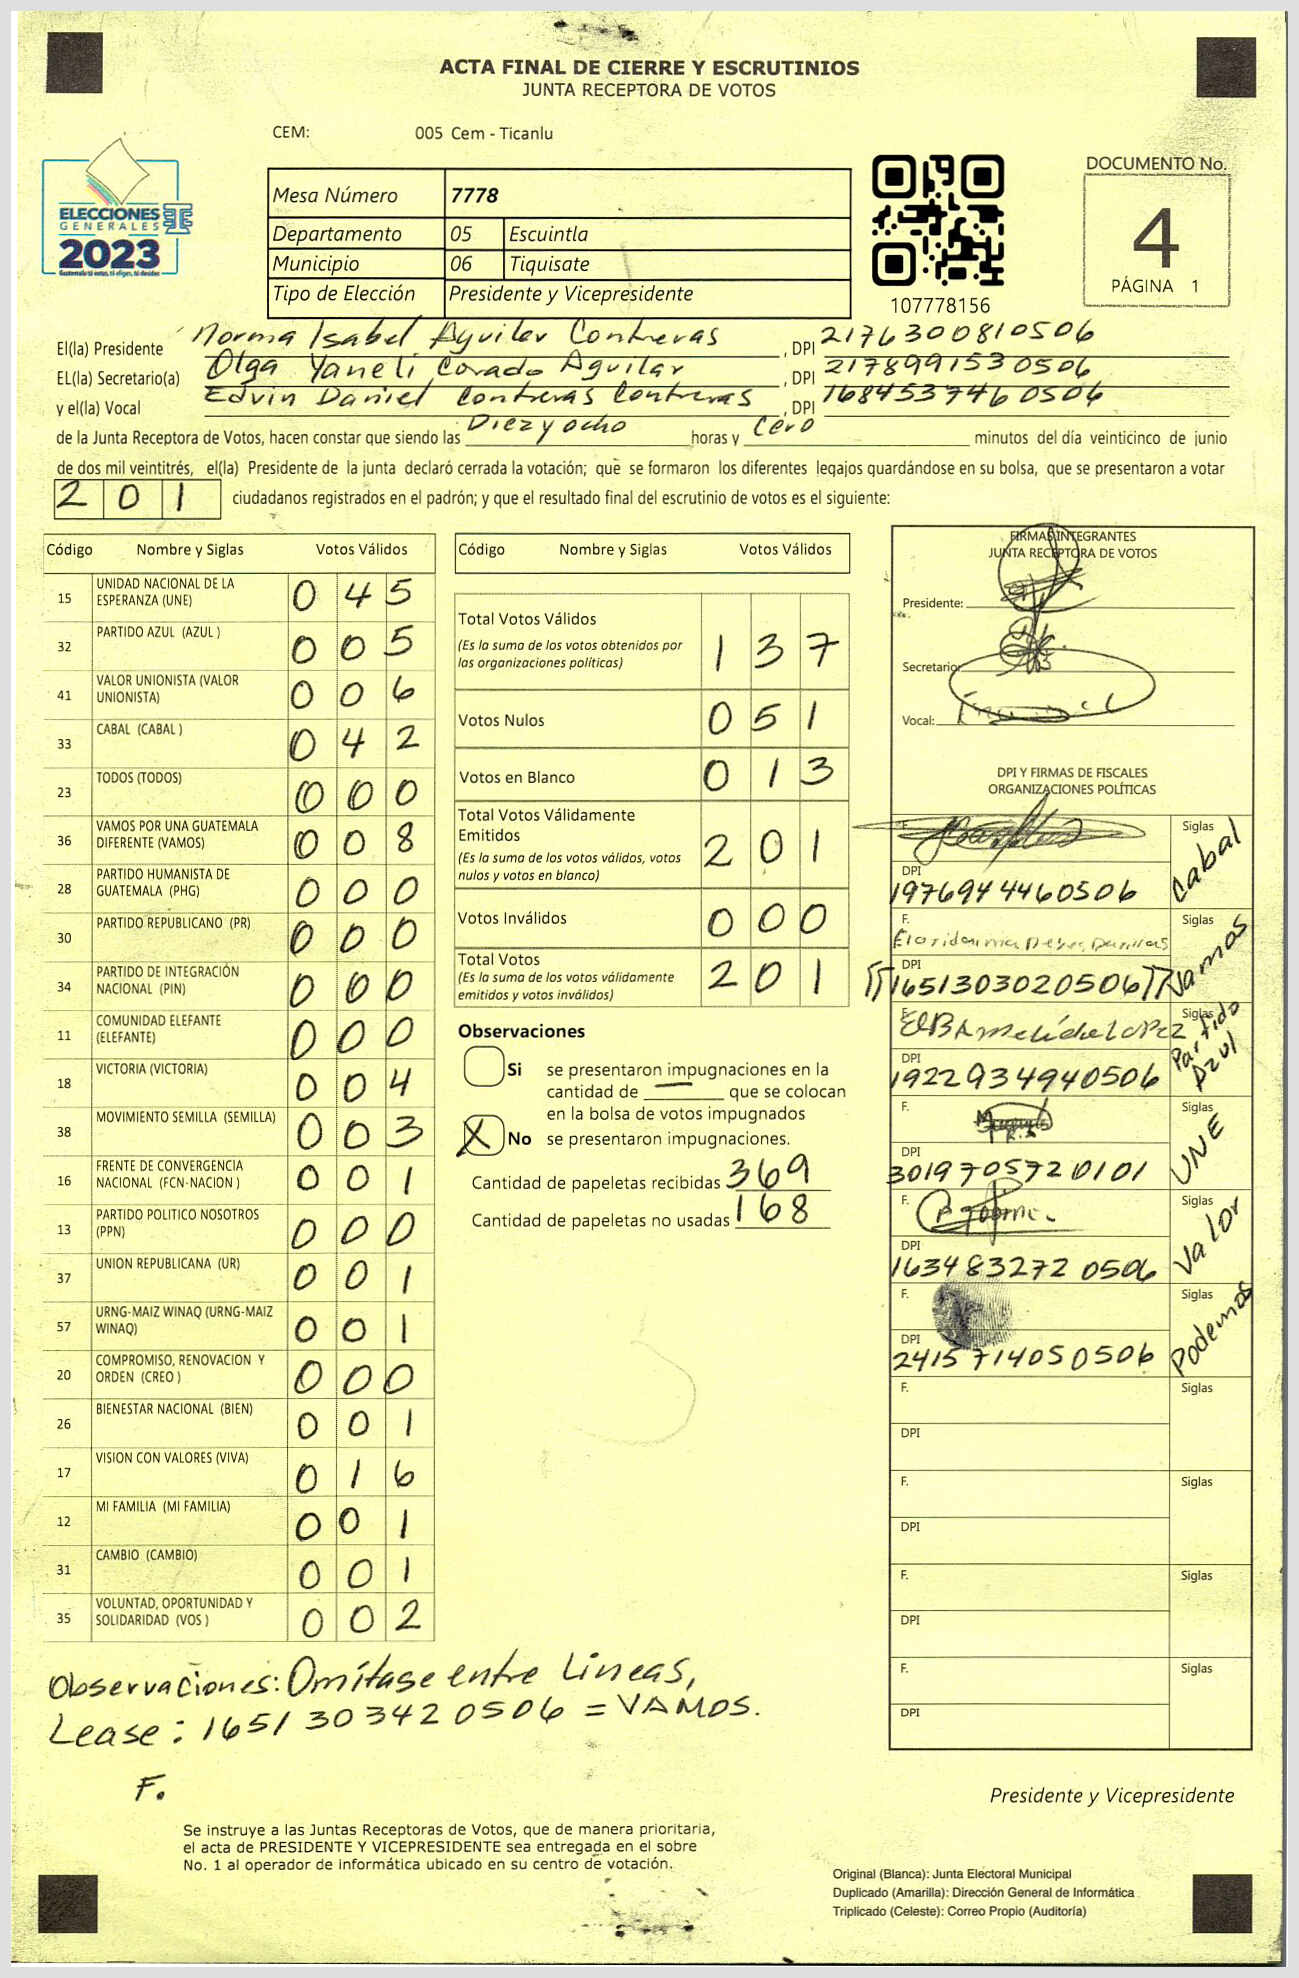 ACTA FINAL DE CIERRE Y ESCRUTINIOS
JUNTA RECEPTORA DE VOTOS
CEM: 005 Cem - Ticanlu
ELECCIONES
GENERALES
2023
Mesa Número 7778
Departamento 05 Escuintla
Municipio 06 Tiquisate
Tipo de Elección Presidente y Vicepresidente
107778156
DOCUMENTO No.
4
PÁGINA 1
El(la) Presidente Norma Isabel Aguilar Contreras , DPI 2176300810506
EL(la) Secretario(a) Olga Yaneli Corado Aguilar , DPI 2178991530506
y el(la) Vocal Edvin Daniel Contreras Contreras , DPI 1684537460506
de la Junta Receptora de Votos, hacen constar que siendo las Diez y ocho horas y Cero minutos del día veinticinco de junio
de dos mil veintitrés, el(la) Presidente de la junta declaró cerrada la votación; que se formaron los diferentes legajos guardándose en su bolsa, que se presentaron a votar
201 ciudadanos registrados en el padrón; y que el resultado final del escrutinio de votos es el siguiente:
Código Nombre y Siglas Votos Válidos
15 UNIDAD NACIONAL DE LA ESPERANZA (UNE) 0 4 5
32 PARTIDO AZUL (AZUL ) 0 0 5
41 VALOR UNIONISTA (VALOR UNIONISTA) 0 0 6
33 CABAL (CABAL ) 0 4 2
23 TODOS (TODOS) 0 0 0
36 VAMOS POR UNA GUATEMALA DIFERENTE (VAMOS) 0 0 8
28 PARTIDO HUMANISTA DE GUATEMALA (PHG) 0 0 0
30 PARTIDO REPUBLICANO (PR) 0 0 0
34 PARTIDO DE INTEGRACIÓN NACIONAL (PIN) 0 0 0
11 COMUNIDAD ELEFANTE (ELEFANTE) 0 0 0
18 VICTORIA (VICTORIA) 0 0 4
38 MOVIMIENTO SEMILLA (SEMILLA) 0 0 3
16 FRENTE DE CONVERGENCIA NACIONAL (FCN-NACION ) 0 0 1
13 PARTIDO POLITICO NOSOTROS (PPN) 0 0 0
37 UNION REPUBLICANA (UR) 0 0 1
57 URNG-MAIZ WINAQ (URNG-MAIZ WINAQ) 0 0 1
20 COMPROMISO, RENOVACION Y ORDEN (CREO ) 0 0 0
26 BIENESTAR NACIONAL (BIEN) 0 0 1
17 VISION CON VALORES (VIVA) 0 1 6
12 MI FAMILIA (MI FAMILIA) 0 0 1
31 CAMBIO (CAMBIO) 0 0 1
35 VOLUNTAD, OPORTUNIDAD Y SOLIDARIDAD (VOS ) 0 0 2
Código Nombre y Siglas Votos Válidos
Total Votos Válidos 1 3 7
(Es la suma de los votos obtenidos por
las organizaciones políticas)
Votos Nulos 0 5 1
Votos en Blanco 0 1 3
Total Votos Válidamente
Emitidos 2 0 1
(Es la suma de los votos válidos, votos
nulos y votos en blanco)
Votos Inválidos 0 0 0
Total Votos 2 0 1
(Es la suma de los votos válidamente
emitidos y votos inválidos)
Observaciones
Si se presentaron impugnaciones en la
cantidad de — que se colocan
en la bolsa de votos impugnados
X No se presentaron impugnaciones.
Cantidad de papeletas recibidas 369
Cantidad de papeletas no usadas 168
FIRMAS INTEGRANTES
JUNTA RECEPTORA DE VOTOS
Presidente:
Secretario:
Vocal:
DPI Y FIRMAS DE FISCALES
ORGANIZACIONES POLÍTICAS
F. Siglas Cabal
DPI 1976944460506
F. Siglas Vamos
DPI 1651303020506
F. Siglas Partido Azul
DPI 1922934940506
F. Siglas UNE
DPI 3019705720101
F. Siglas Valor
DPI 1634832720506
F. Siglas Podemos
DPI 2415714050506
F. Siglas
DPI
F. Siglas
DPI
F. Siglas
DPI
F. Siglas
DPI
Observaciones: Omítase entre Lineas,
Lease: 1651303420506 = VAMOS.
F.
Presidente y Vicepresidente
Se instruye a las Juntas Receptoras de Votos, que de manera prioritaria,
el acta de PRESIDENTE Y VICEPRESIDENTE sea entregada en el sobre
No. 1 al operador de informática ubicado en su centro de votación.
Original (Blanca): Junta Electoral Municipal
Duplicado (Amarilla): Dirección General de Informática
Triplicado (Celeste): Correo Propio (Auditoría)